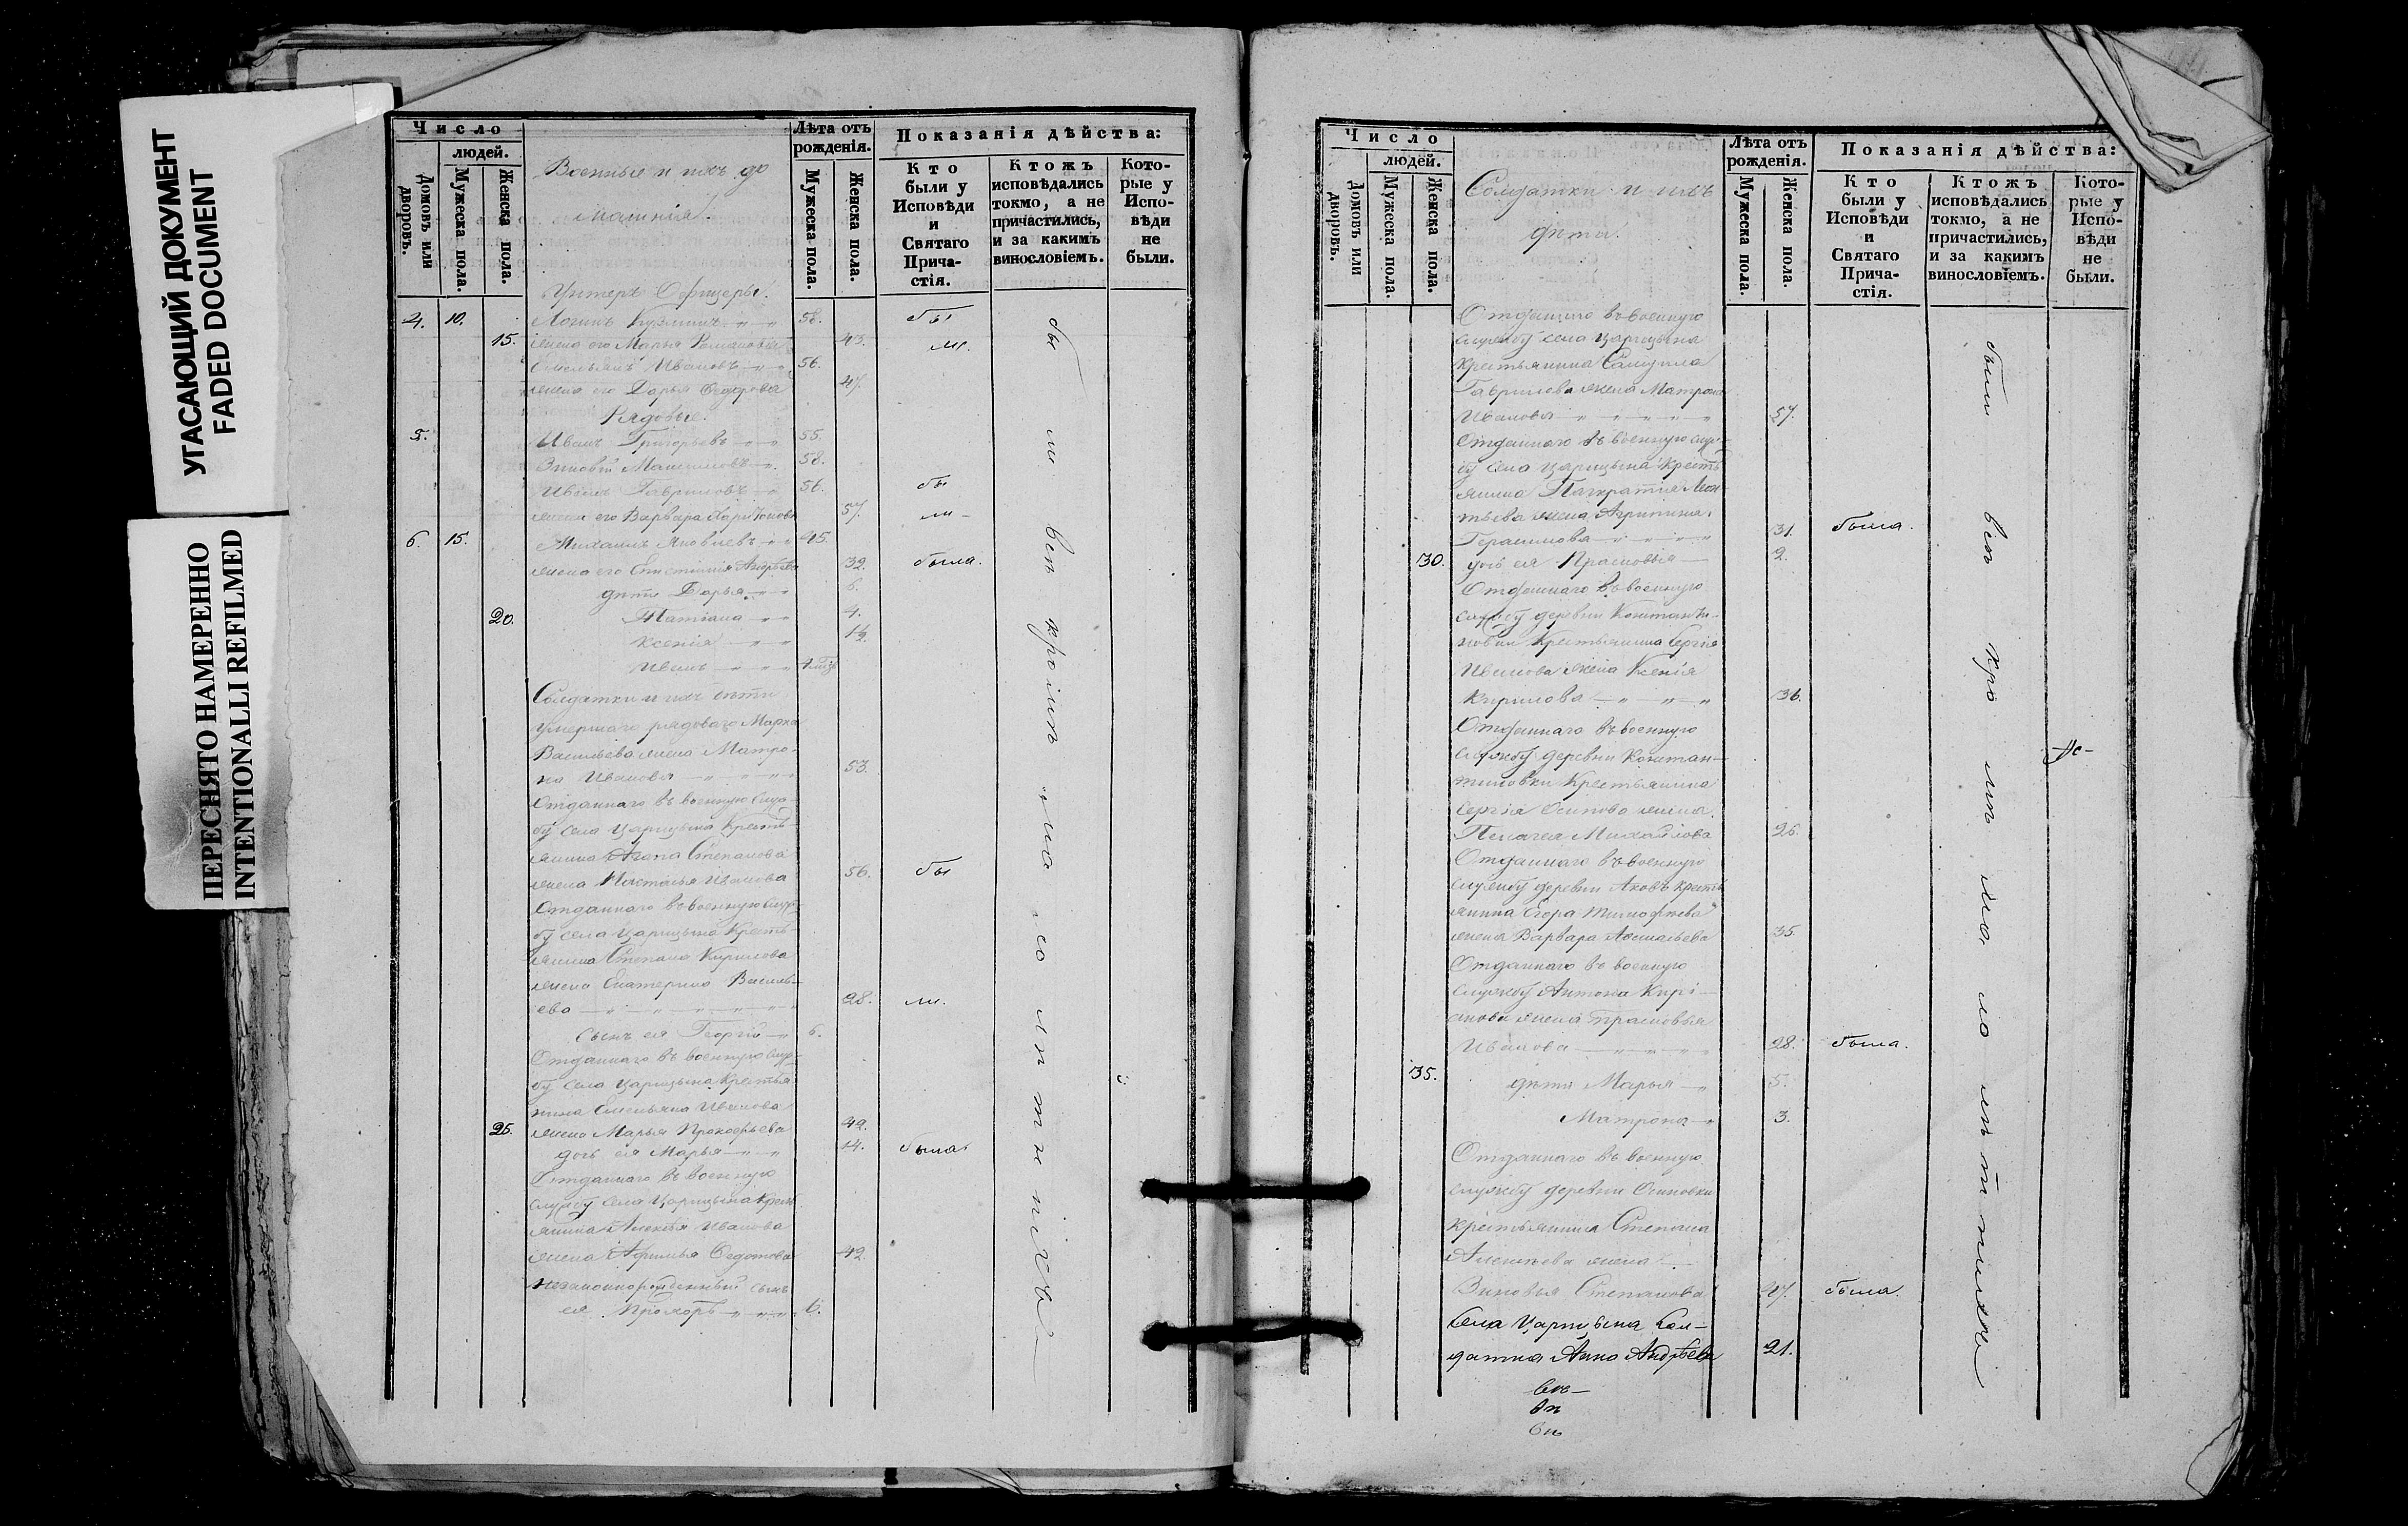 УГАСАЮЩИЙ ДОКУМЕНТ
FADED DOCUMENT
ПЕРЕСНЯТО НАМЕРЕННО
INTENTIONALLI REFILMED
Число
людей.
Домовъ или дворовъ.
Мужеска пола.
Женска пола.
Военные и ихъ до
машнія.
Лѣта отъ рожденія.
Мужеска пола.
Женска пола.
Показанія дѣйства:
Кто были у Исповѣди и Святаго Причастія.
Ктожъ исповѣдались токмо, а не причастились, и за какимъ винословіемъ.
Которые у Исповѣди не были.
Унтеръ Офицеры.
4. 10. Логинъ Кузминъ 58. бы
15. жена его Марья Романова 43. ли.
Емельянъ Ивановъ 56.
жена его Дарья Федорова 47.
Рядовые.
5. Иванъ Григорьевъ 55.
Зиновій Максимовъ 58.
Иванъ Гавриловъ 56. бы
жена его Варвара Харитонова 57. ли
6. 15. Михаилъ Яковлевъ 45.
жена его Евстолія Андреева 32. была.
дѣти Дарья 6.
20. Татіана 4.
Ксенія 1½
Иванъ
Солдатки и ихъ дѣти
умершаго рядоваго Марка
Васильева жена Матро-
на Иванова 53.
Отданнаго въ военную служ-
бу села Царицына Кресть-
янина Агапа Степанова
жена Наталья Иванова 56. бы
Отданнаго въ военную служ-
бу села Царицына Кресть-
янина Степана Кирилова
жена Екатерина Василь-
ева 28. ли.
Сынъ ея Георгій 6.
Отданнаго въ военную служ-
бу села Царицына Крестья-
нина Емельяна Иванова
25. жена Марья Прокофьева 42.
дочь ея Марья 14. была
Отданнаго въ военную
службу села Царицына Кресть
янина Алексѣя Иванова
жена Афимья Федотова 42
незаконнорожденный сынъ
ея Прохоръ 6.
бы ли всѣ кромѣ малолѣтнихъ
Число
людей.
Домовъ или дворовъ.
Мужеска пола.
Женска пола.
Солдатки и ихъ
дѣти.
Лѣта отъ рожденія.
Мужеска пола.
Женска пола.
Показанія дѣйства:
Кто были у Исповѣди и Святаго Причастія.
Ктожъ исповѣдались токмо, а не причастились, и за какимъ винословіемъ.
Которые у Исповѣди не были.
Отданнаго въ военную
службу села Царицына
Крестьянина Самуила
Гаврилова жена Матрона
Иванова 57.
Отданнаго въ военную служ-
бу села Царицына Кресть
янина Панкратія Леон
тьева жена Агрипина
Герасимова 31. была.
30. дочь ея Прасковья 2.
Отданнаго въ военную
службу деревни Константи-
новки Крестьянина Сергія
Иванова жена Ксенія
Кирилова 36.
Отданнаго въ военную
службу деревни Констан-
тиновки Крестьянина
Сергія Осипова жена
Пелагея Михайлова 26.
Отданнаго въ военную
службу деревни Крестъ
янина Егора Тимофѣева
жена Варвара 35.
Отданнаго въ военную
службу Антона Кири-
лова жена Прасковья
Иванова 28. была.
35. дѣти Марья 5.
Матрона 3.
Отданнаго въ военную
службу деревни Осиновки
Крестьянина Степана
Алексѣева жена
Зиновья Степанова 27. была.
Села Царицына Сол-
датка Анна Андреева 21.
были всѣ кро мѣ мало лѣтнихъ